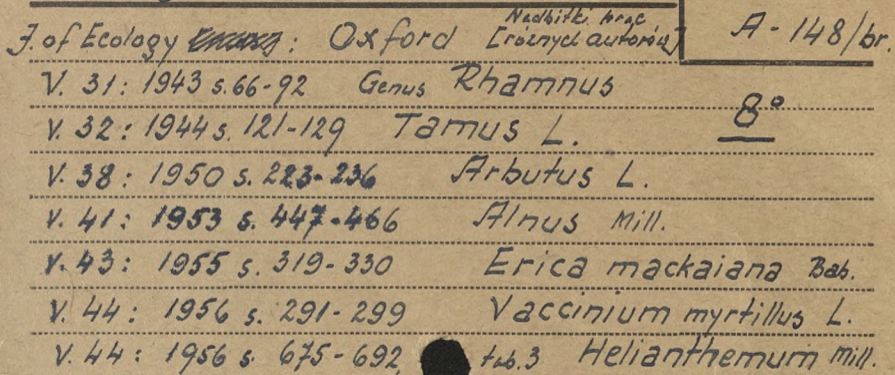 Nadbitki prac
J. of Ecology : Oxford [różnych autorów] A - 148/br.
V. 31: 1943 s. 66-92 Genus Rhamnus
8°
V. 32: 1944 s. 121-129 Tamus L.
V. 38: 1950 s. 223-236 Arbutus L.
V. 41: 1953 s. 447-466 Alnus Mill.
V. 43: 1955 s. 319-330 Erica mackaiana Bab.
V. 44: 1956 s. 291-299 Vaccinium myrtillus L.
V. 44: 1956 s. 675-692 tab. 3 Helianthemum Mill.